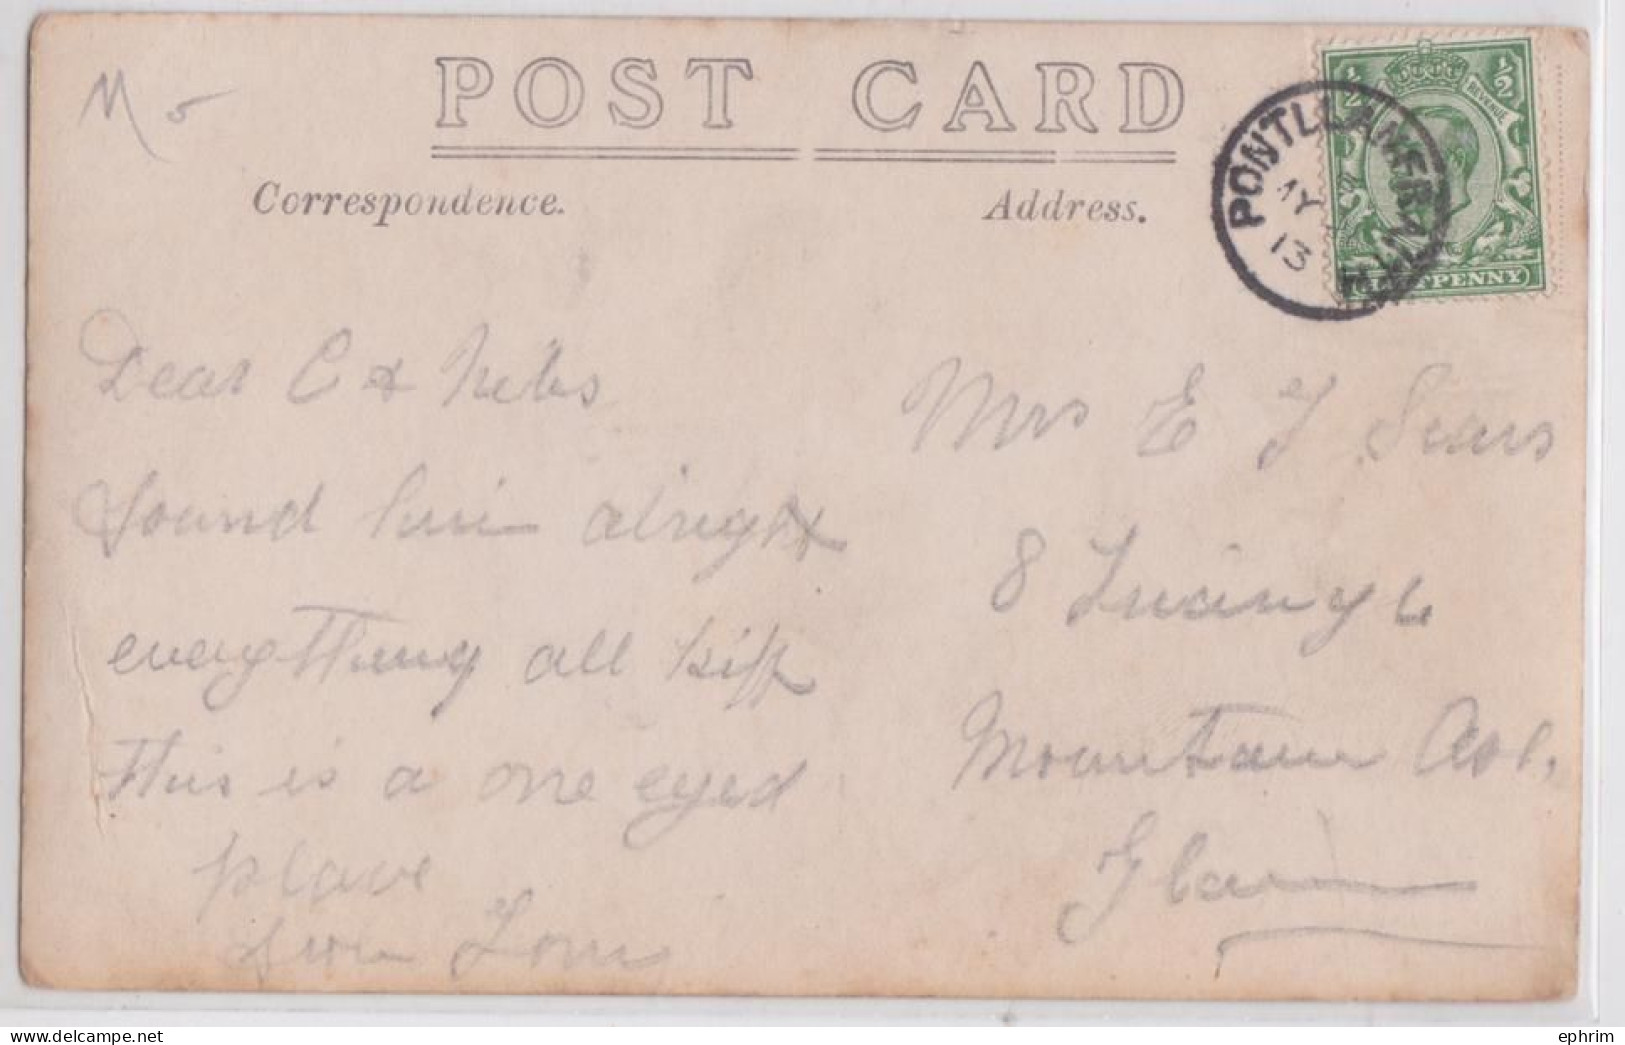 M
POST CARD
Correspondence.
Address.
PONTLLANFRAITH
MY
13
½
½
REVENUE
HALFPENNY
Dear C & Nibs
found him alright
everything all kiff
this is a one eyed
place
from Tom
Mrs E J Sears
8
Mountain Ash,
Glam
ephrim